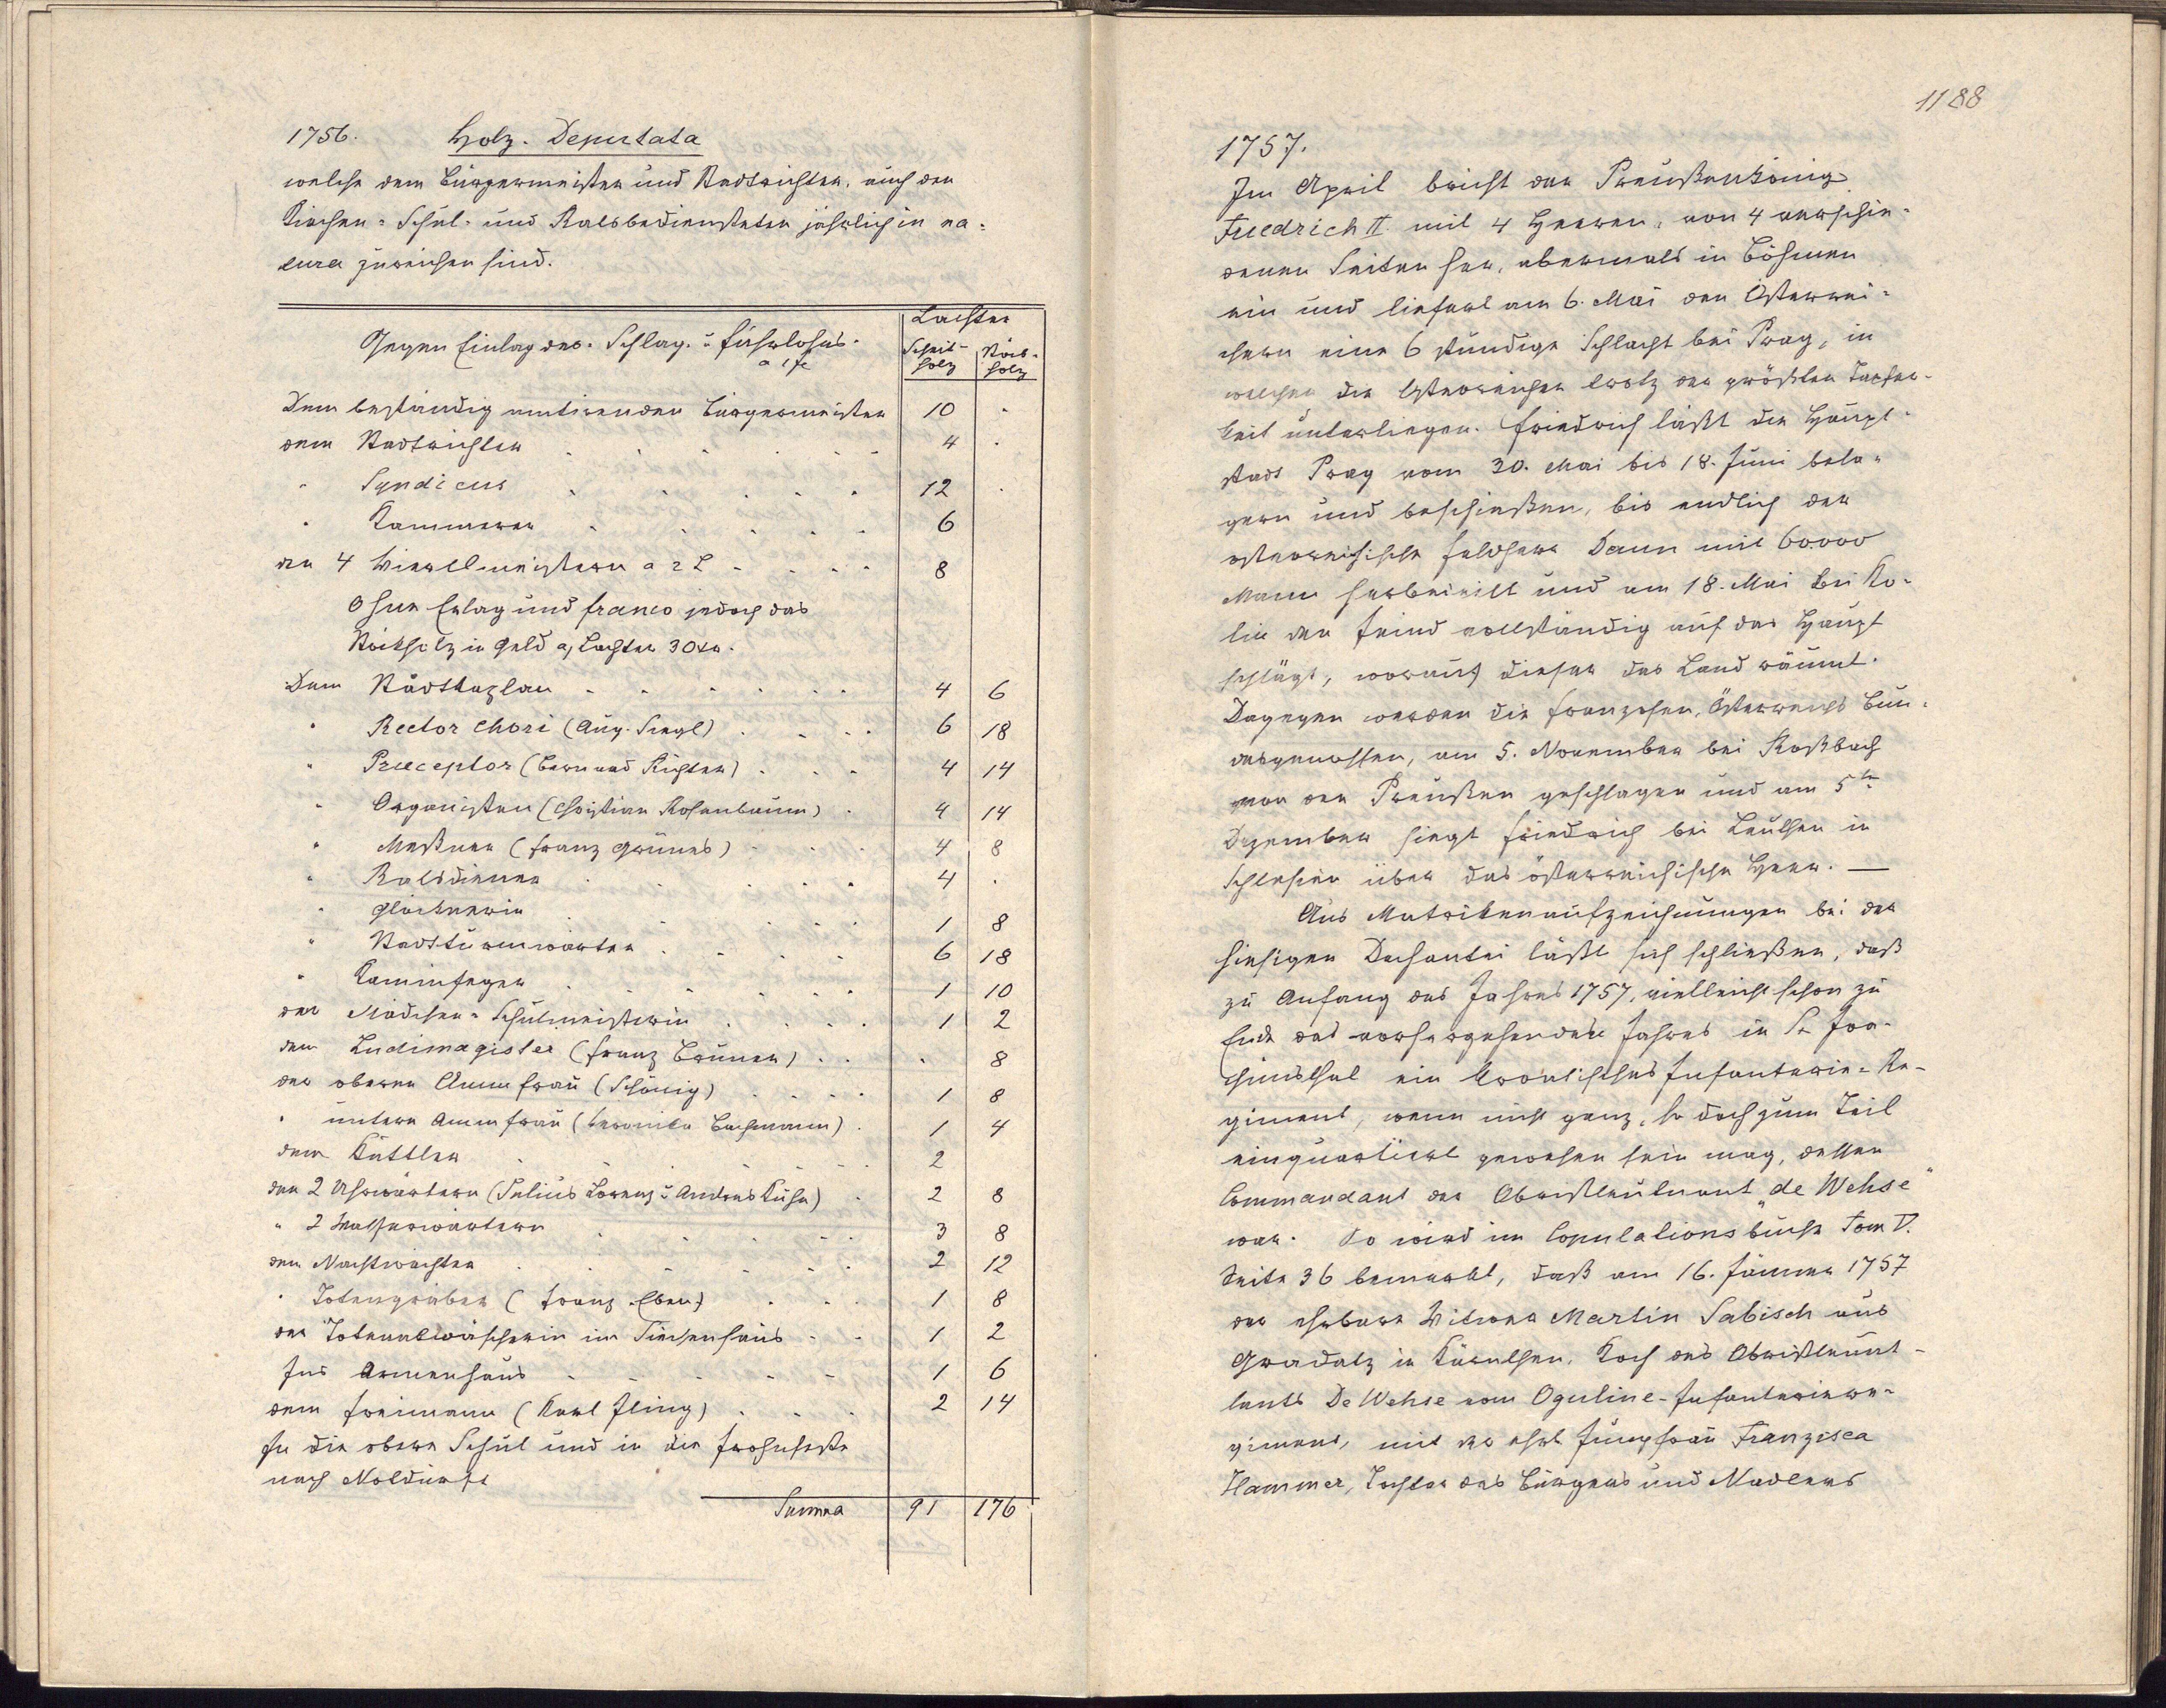 1756. Holz-Deputata
welche dem Bürgermeister und Stadtrichter, auch den
Kirchen- Schul- und Ratsbediensteten jährlich in na-
tura zureichen sind.
Gegen Einlag des Schlag- u Fuhrlohns.
a 1 fl
Lachter
Scheit-
holz
Stock-
holz
Dem beständig amtirenden Bürgermeister 10 .
dem Stadtrichter 4 .
" Syndicus 12 .
" Kammerer 6
den 4 Viertlmeistern a 2 L 8
Ohne Erlag und franco jedoch das
Stockholz in Geld a Lachter 30 kr.
Dem Stadtkaplan 4 6
" Rector chori (Aug. Siegl) 6 18
" Praeceptor (Bernard Richter) 4 14
" Organisten (Christian Rosenbaum) 4 14
" Meßner (Franz Grünes) 4 8
" Ratsdiener 4 .
" Glöcknerin 1 8
" Stadtturmwarter 6 18
" Kaminfeger 1 10
der Mädchen-Schulmeisterin 1 2
dem Ludimagister (Franz Brunner) . 8
der oberen Ammfrau (Schönig) 1 8
" untern Ammfrau (Veronika Bachmann) 1 4
dem Küttler 2
den 2 Uhrwärtern (Julius Lorenz u Andreas Kuhn) 2 8
" 2 Wasserwärtern 3 8
dem Nachtwächter 2 12
" Totengräber (Franz Eber) 1 8
der Totenabwäscherin im Siechenhaus 1 2
Ins Armenhaus 1 6
dem Freimann (Karl Illing) 2 14
In die obere Schul und in die Frohnfeste
nach Notdurft
Summa 91 176
1188
1757.
Im April bricht der Preußenkönig
Friedrich II. mit 4 Heeren, von 4 verschie-
denen Seiten her, abermals in Böhmen
ein und liefert am 6. Mai den Österrei-
chern eine 6 stündige Schlacht bei Prag, in
welcher die Österreicher trotz der größten Tapfer-
keit unterliegen. Friedrich läßt die Haupt-
stadt Prag vom 30. Mai bis 18. Juni bela-
gern und beschießen, bis endlich der
österreichische Feldherr Daun mit 60.000
Mann herbeieilt und am 18. Mai bei Ko-
lin den Feind vollständig auf das Haupt
schlägt, worauf dieser das Land räumt.
Dagegen werden die Franzosen, Österreichs Bun-
desgenossen, am 5. November bei Roßbach
von den Preußen geschlagen und am 5ten
Dezember siegt Friedrich bei Leuthen in
Schlesien über das österreichische Heer. —
Aus Matrikenaufzeichnungen bei der
hiesigen Dechantei läßt sich schließen, daß
zu Anfang des Jahres 1757, vielleicht schon zu
Ende des vorhergehenden Jahres in St Joa-
chimsthal ein kroatisches Infanterie-Re-
giment, wenn nicht ganz, so doch zum Teil
einquartiert gewesen sein mag, dessen
Commandant der Obristleutnant „de Wehse"
war. So wird im Copulationsbuche Tom V.
Seite 36 bemerkt, daß am 16. Jänner 1757
der ehrbare Witwer Martin Sabisch aus
Gradatz in Kärnthen, Koch des Obristleuut-
tants De Wehse vom Oguline-Infanteriere-
giment, mit der ehrb Jungfrau Franzisca
Hammer, Tochter des Bürgers und Nadlers